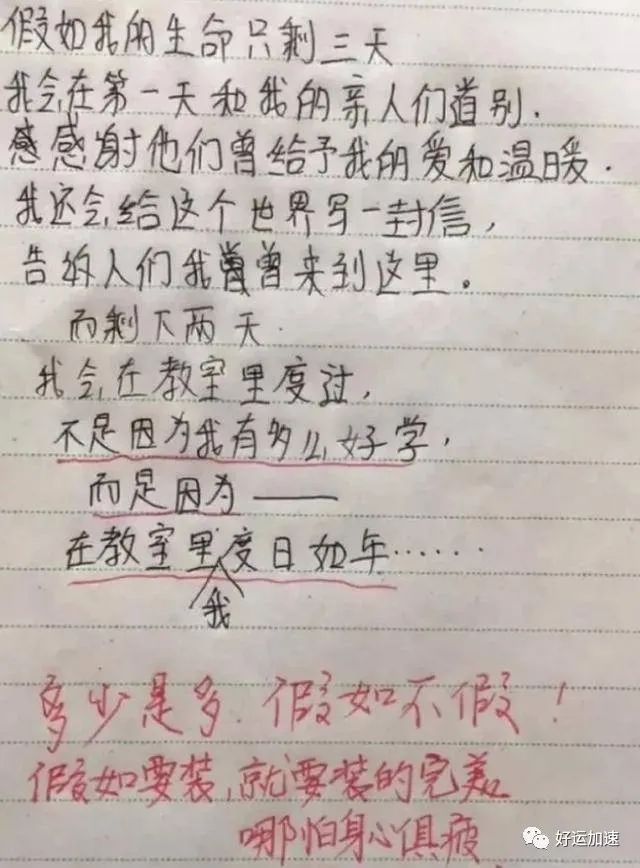 假如我的生命只剩三天
我会在第一天和我的亲人们道别.
感感谢他们曾给予我的爱和温暖.
我还会给这个世界写一封信,
告诉人们我曾曾来到这里。
而剩下两天.
我会在教室里度过,
不是因为我有多么好学,
而是因为——
在教室里度日如年……
我
多少是多.假如不假!
假如要装,就要装的完美
哪怕身心俱疲
好运加速